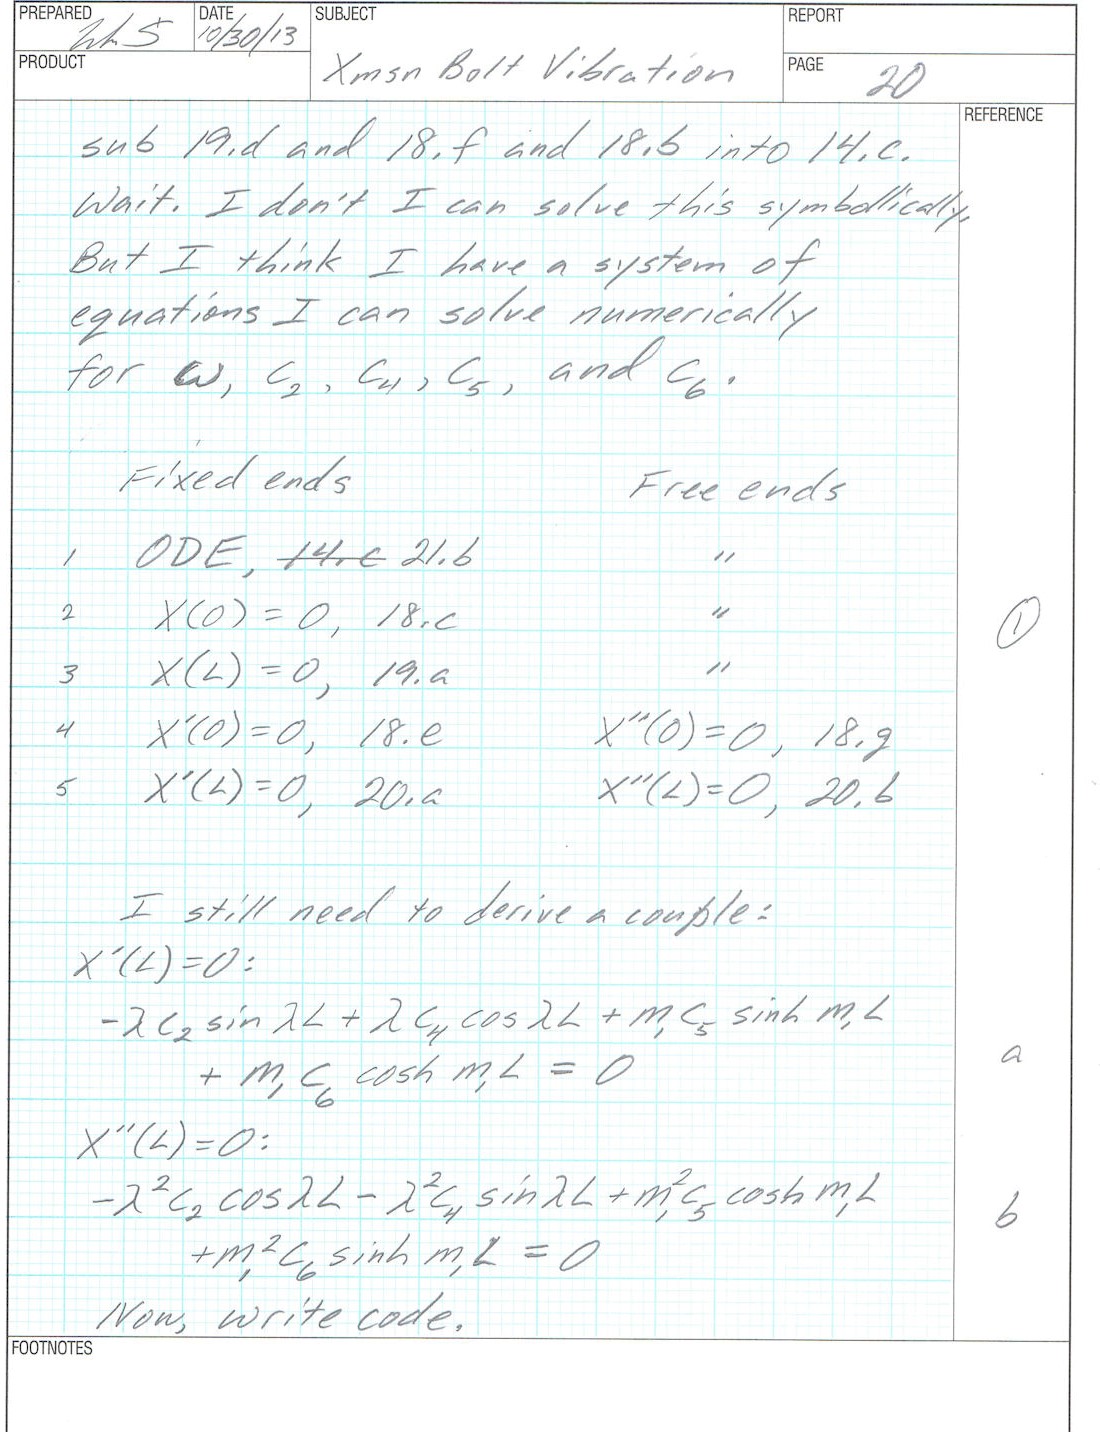 PREPARED
DATE
SUBJECT
REPORT
10/30/13
PRODUCT
Xmsn Bolt Vibration
PAGE
20
REFERENCE
sub 19.d and 18.f and 18.b into 14.c.
Wait. I don't I can solve this symbollically.
But I think I have a system of
equations I can solve numerically
for ω, C₂, C₄, C₅, and C₆.
Fixed ends Free ends
1 ODE, 14.c 21.b "
2 X(0) = 0, 18.c "
①
3 X(L) = 0, 19.a "
4 X'(0) = 0, 18.e X"(0) = 0, 18.g
5 X'(L) = 0, 20.a X"(L) = 0, 20.b
I still need to derive a couple:
X'(L) = 0:
-λC₂ sin λL + λC₄ cos λL + m₁C₅ sinh m₁L
+ m₁C₆ cosh m₁L = 0
a
X"(L) = 0:
-λ²C₂ cos λL - λ²C₄ sin λL + m₁²C₅ cosh m₁L
b
+ m₁²C₆ sinh m₁L = 0
Now, write code.
FOOTNOTES